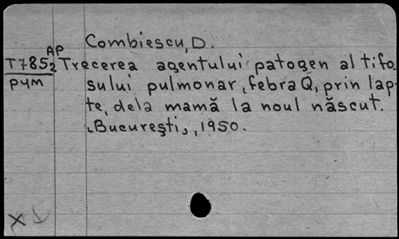 Combiescu, D.
AP
T7852 Trecerea agentului patogen al tifo
рум sului pulmonar, febra Q, prin lap-
te, dela mamă la noul născut.
București, 1950.